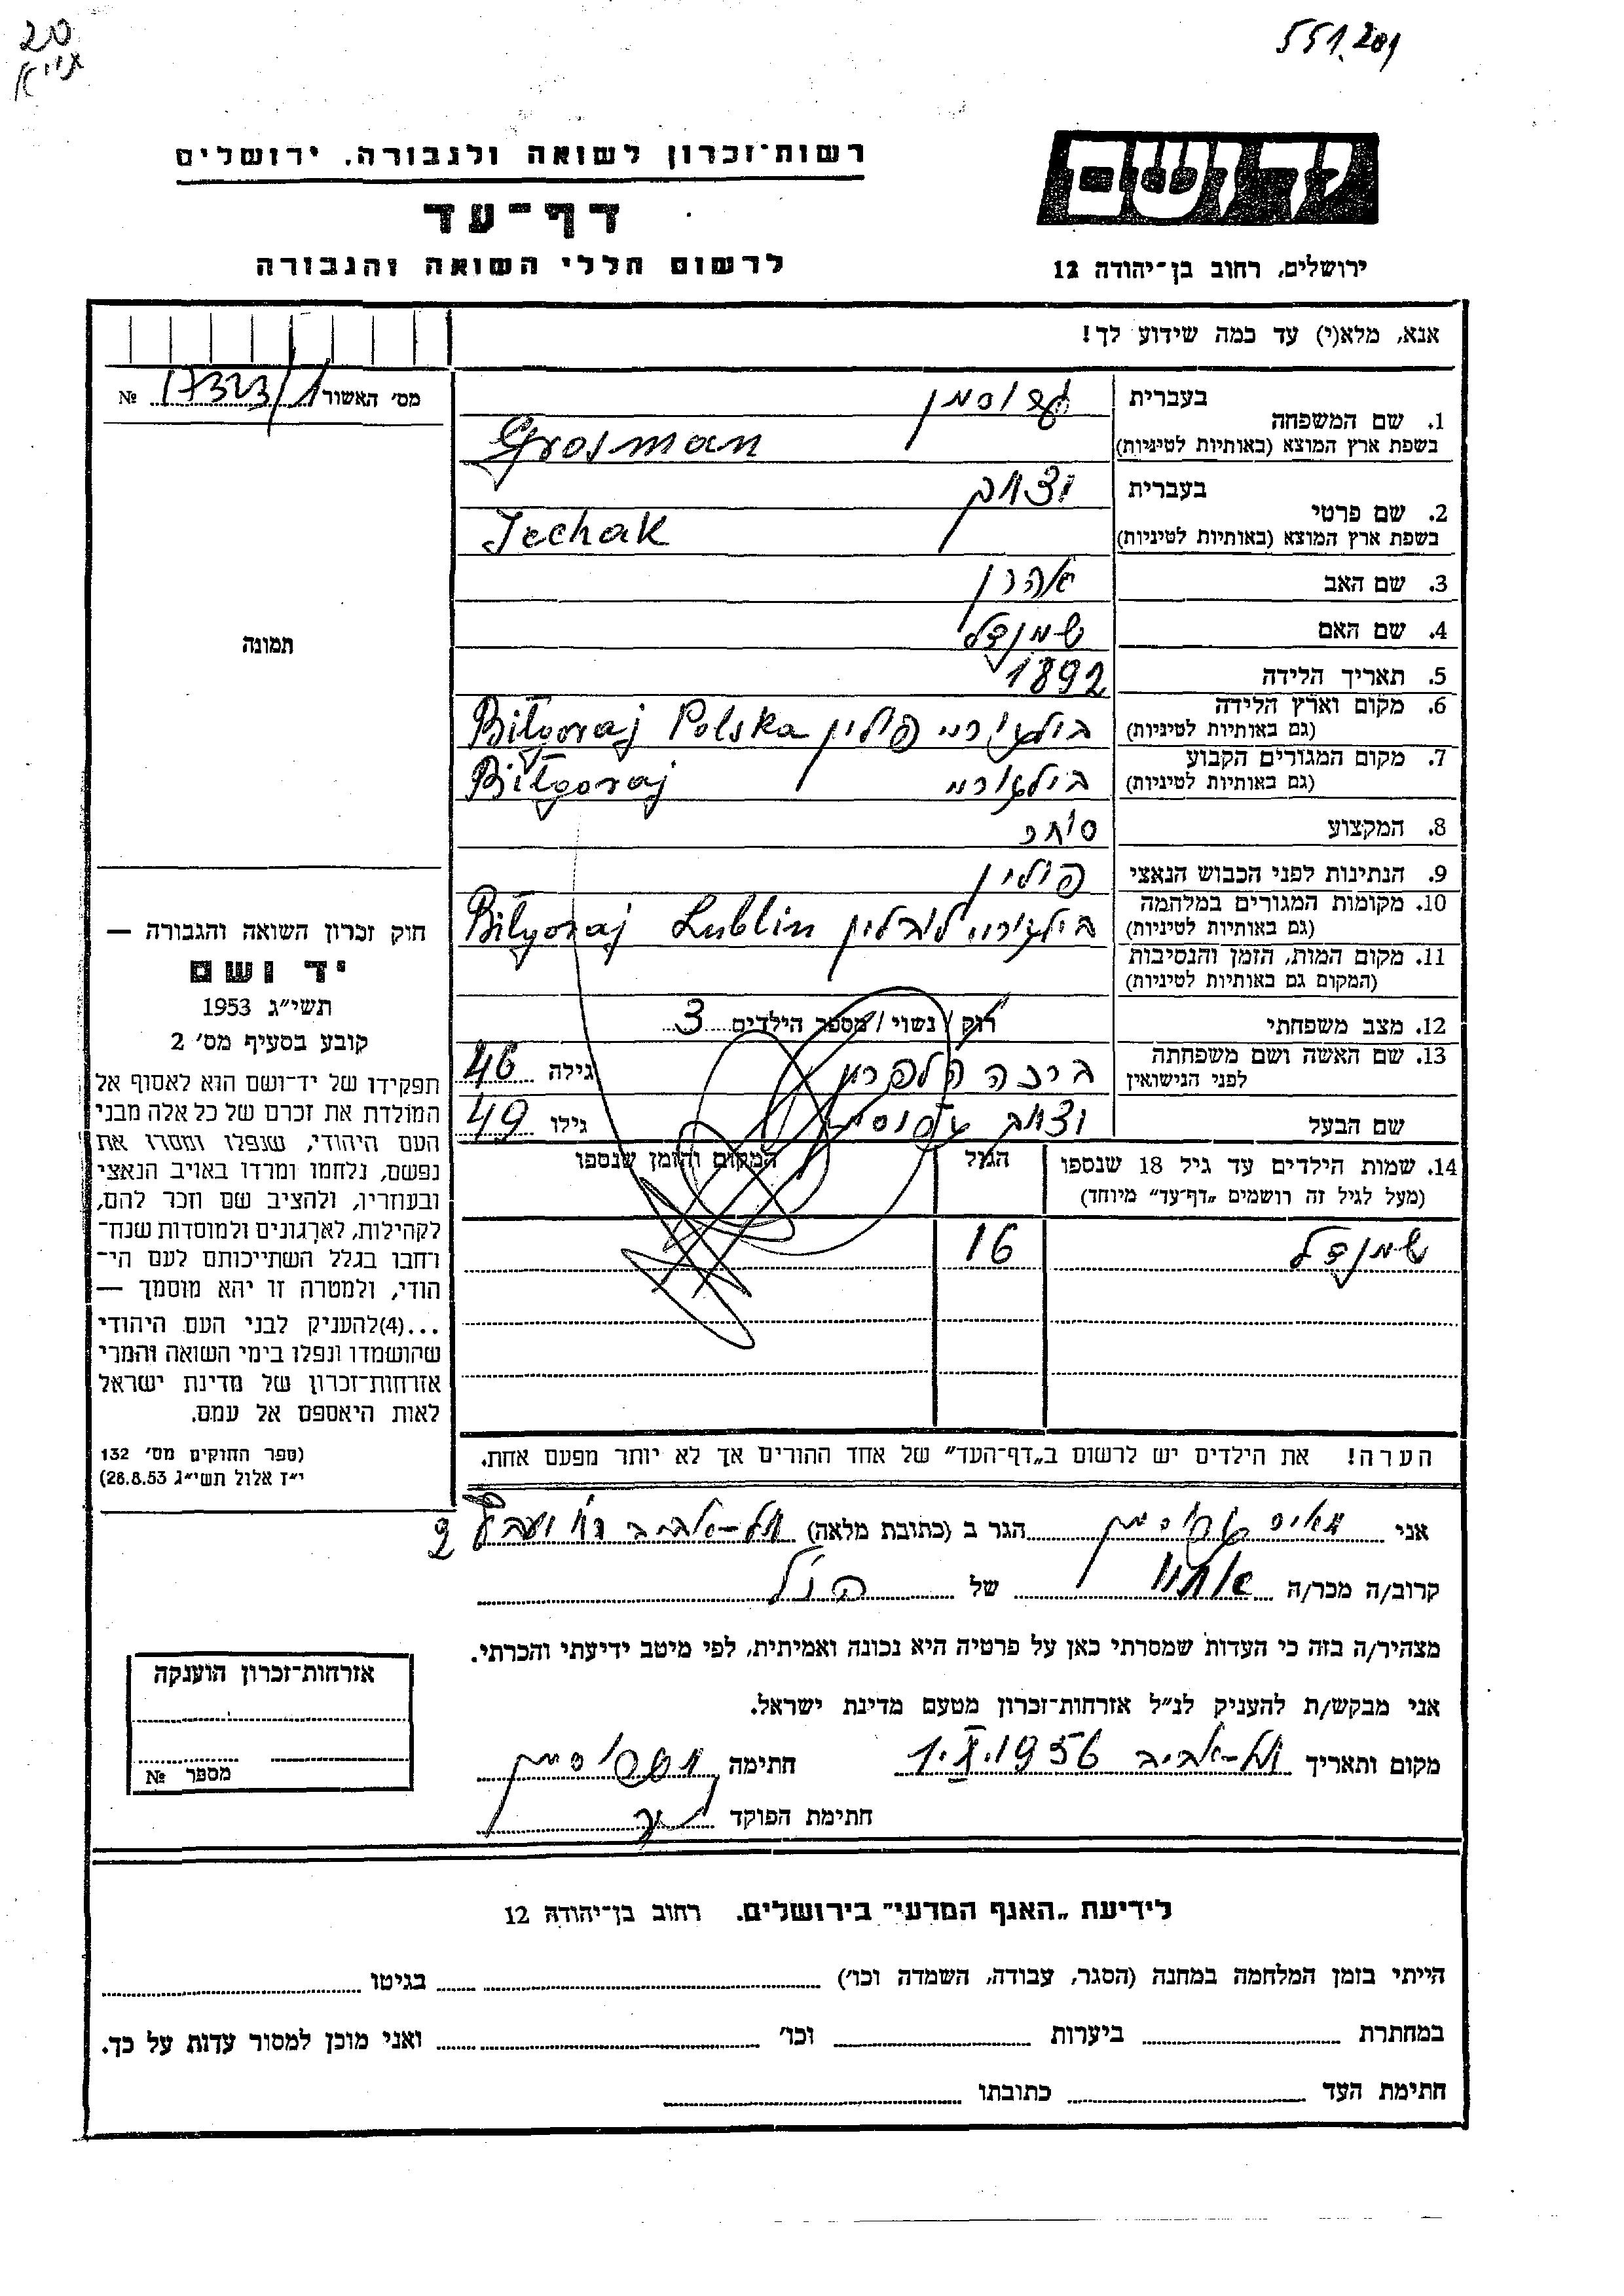 20
551.201
רשות־זכרון לשואה ולגבורה. ירושלים
דף־עד
לרשום חללי השואה והגבורה
יד ושם
ירושלים, רחוב בן־יהודה 12
אנא, מלא(י) עד כמה שידוע לך!
מס׳ האשור 17323/1 №
1. שם המשפחה
בעברית גרוסמן
בשפת ארץ המוצא (באותיות לטיניות) Grosman
2. שם פרטי
בעברית יצחק
בשפת ארץ המוצא (באותיות לטיניות) Icchak
3. שם האב אהרן
4. שם האם שמנדל
5. תאריך הלידה 1892
6. מקום וארץ הלידה
(גם באותיות לטיניות) בילגוריי פולין Biłgoraj Polska
7. מקום המגורים הקבוע
(גם באותיות לטיניות) בילגוריי Biłgoraj
8. המקצוע סוחר
9. הנתינות לפני הכבוש הנאצי פולין
10. מקומות המגורים במלחמה
(גם באותיות לטיניות) בילגוריי לובלין Bilgoraj Lublin
11. מקום המות, הזמן והנסיבות
(המקום גם באותיות לטיניות)
12. מצב משפחתי רוק / נשוי / מספר הילדים 3
13. שם האשה ושם משפחתה
לפני הנישואין ברכה הלפרן גילה 46
שם הבעל יצחק גרוסמן גילו 49
14. שמות הילדים עד גיל 18 שנספו
(מעל לגיל זה רושמים „דף־עד״ מיוחד)
הגיל
המקום והזמן שנספו
שמנדל 16
הערה! את הילדים יש לרשום ב„דף־העד״ של אחד ההורים אך לא יותר מפעם אחת.
תמונה
חוק זכרון השואה והגבורה —
יד ושם
תשי״ג 1953
קובע בסעיף מס׳ 2
תפקידו של יד־ושם הוא לאסוף אל
המולדת את זכרם של כל אלה מבני
העם היהודי, שנפלו ומסרו את
נפשם, נלחמו ומרדו באויב הנאצי
ובעוזריו, ולהציב שם וזכר להם,
לקהילות, לארגונים ולמוסדות שנח־
רחבו בגלל השתייכותם לעם הי־
הודי, ולמטרה זו יהא מוסמך —
...(4)להעניק לבני העם היהודי
שהושמדו ונפלו בימי השואה והמרי
אזרחות־זכרון של מדינת ישראל
לאות היאספם אל עמם.
(ספר החוקים מס׳ 132
י״ז אלול תשי״ג 28.8.53)
אני מאיר גרוסמן הגר ב (כתובת מלאה) תל-אביב רח׳ 9
קרוב/ה מכר/ה אחיו של הנ״ל
מצהיר/ה בזה כי העדות שמסרתי כאן על פרטיה היא נכונה ואמיתית, לפי מיטב ידיעתי והכרתי.
אני מבקש/ת להעניק לנ״ל אזרחות־זכרון מטעם מדינת ישראל.
מקום ותאריך תל-אביב 1.X.1956 חתימה מ גרוסמן
חתימת הפוקד
אזרחות־זכרון הוענקה
מספר №
לידיעת „האגף המדעי״ בירושלים. רחוב בן־יהודה 12
הייתי בזמן המלחמה במחנה (הסגר, עבודה, השמדה וכו׳) בגיטו
במחתרת ביערות וכו׳ ואני מוכן למסור עדות על כך.
חתימת העד כתובתו